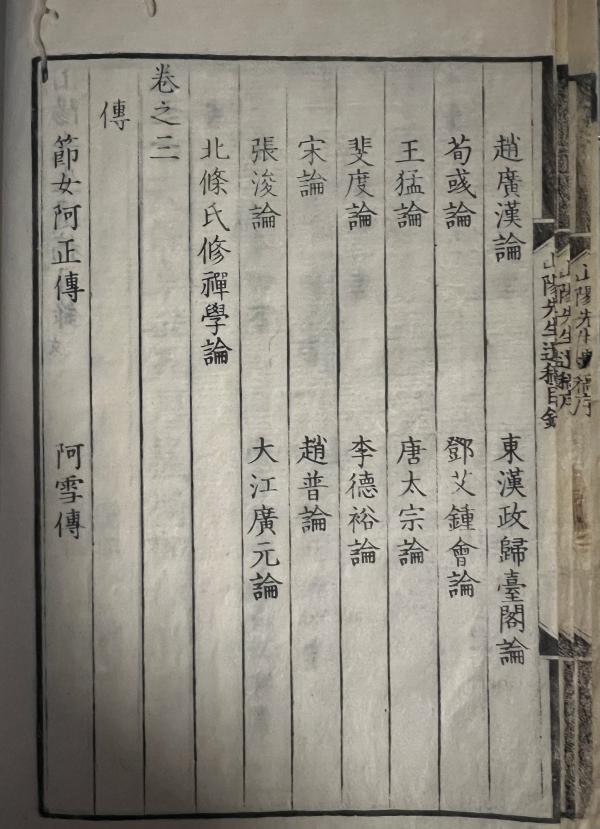 趙廣漢論 東漢政歸臺閣論
荀彧論 鄧艾鍾會論
王猛論 唐太宗論
斐度論 李德裕論
宋論 趙普論
張浚論 大江廣元論
北條氏修禪學論
卷之三
傳
節女阿正傳 阿雪傳
山陽先生遺稿目錄